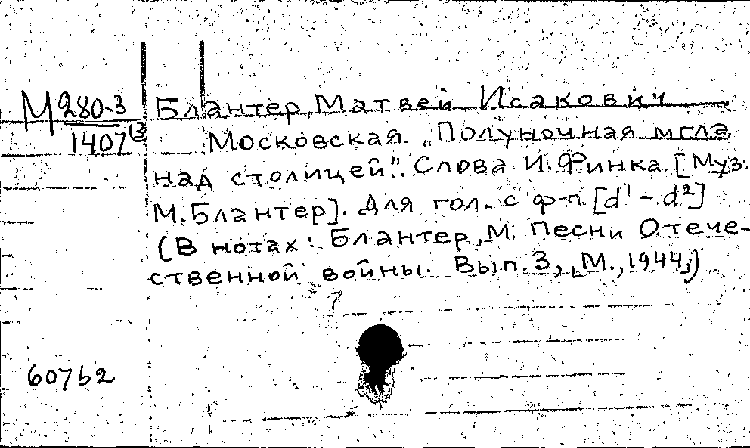 М 280-3
1407
Блантер, Матвей Исакович
Московская. „Полуночная мгла
над столицей“. Слова И. Финка. [Муз.
М. Блантер]. Для гол. с ф-п. [d¹ – d²]
(В нотах: Блантер, М. Песни Отече-
ственной войны. Вып. 3, М., 1944,)
60762